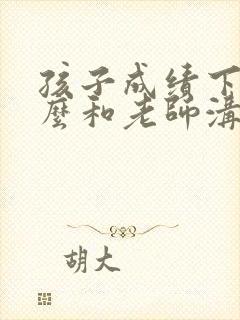 孩子成绩下
麼和老師溝
胡大